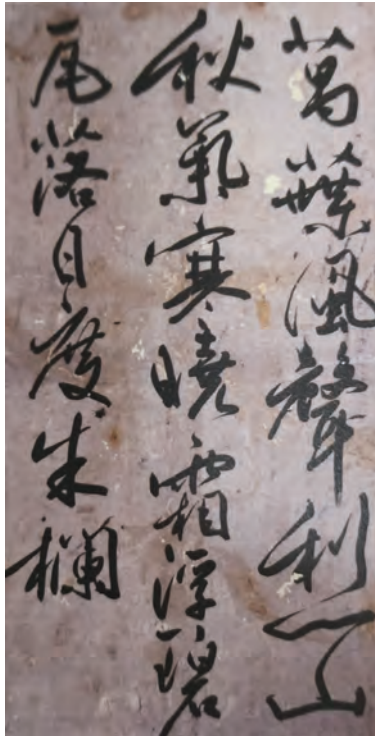 萬葉風聲利一山
秋氣寒曉霜浮碧
瓦落日度朱欄